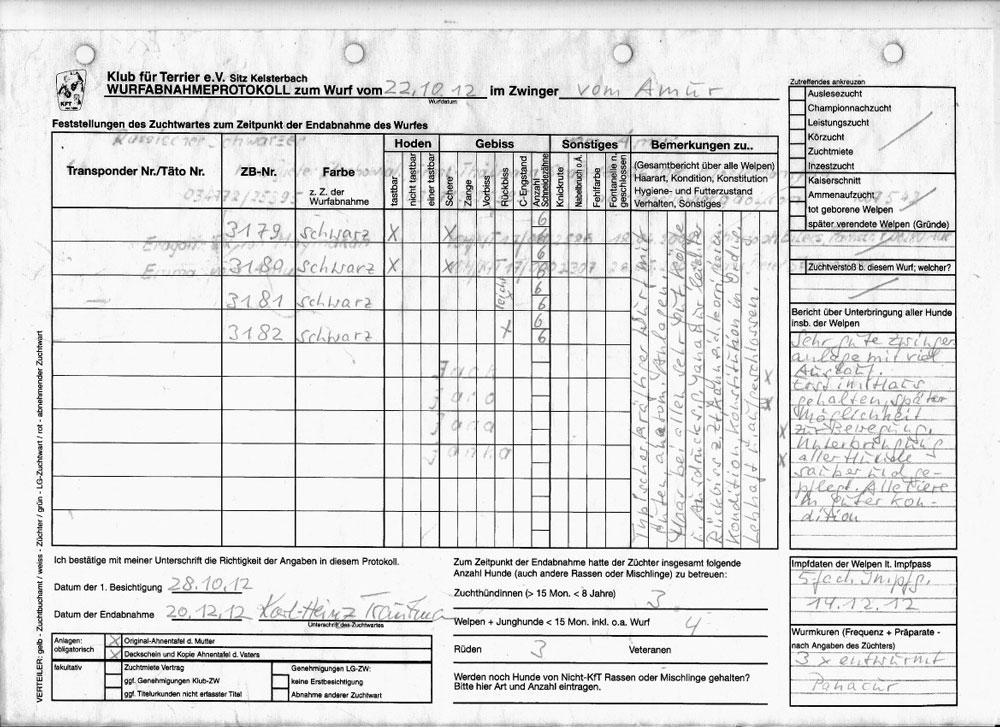 Klub für Terrier e.V. Sitz Kelsterbach
WURFABNAHMEPROTOKOLL zum Wurf vom 22.10.12 im Zwinger vom Amur
Wurfdatum
KFT
Feststellungen des Zuchtwartes zum Zeitpunkt der Endabnahme des Wurfes
Hoden Gebiss Sonstiges Bemerkungen zu..
Transponder Nr./Täto Nr. ZB-Nr. Farbe
z. Z. der
Wurfabnahme
tastbar
nicht tastbar
einer tastbar
Schere
Zange
Vorbiss
Rückbiss
C-Engstand
Anzahl
Schneidezähne
Knickrute
Nabelbruch o.Ä.
Fehlfarbe
Fontanelle n.
geschlossen
(Gesamtbericht über alle Welpen)
Haarart, Kondition, Konstitution
Hygiene- und Futterzustand
Verhalten, Sonstiges
3179 schwarz X X 6 6
3180 schwarz X X 6 6
3181 schwarz leicht 6 6
3182 schwarz X 6 6
Typischer kräftiger Wurf mit
guten anatom. Anlagen.
Haar bei allen sehr gut
Kondition, Konstitution in Ordnung
Lebhaft u. aufgeschlossen.
Zutreffendes ankreuzen
Auslesezucht
Championnachzucht
Leistungszucht
Körzucht
Zuchtmiete
Inzestzucht
Kaiserschnitt
Ammenaufzucht
tot geborene Welpen
später verendete Welpen (Gründe)
Zuchtverstoß b. diesem Wurf; welcher?
Bericht über Unterbringung aller Hunde
insb. der Welpen
Sehr gute Zwinger
anlage mit viel
Auslauf.
Erst im Haus
gehalten, später
Möglichkeit
zur Bewegung.
Unterbringung
aller Hunde
sauber und ge-
pflegt. Alle Tiere
in guter Kon-
dition
Impfdaten der Welpen lt. Impfpass
5-fach Impfg.
14.12.12
Wurmkuren (Frequenz + Präparate -
nach Angaben des Züchters)
3 x entwurmt
Panacur
Ich bestätige mit meiner Unterschrift die Richtigkeit der Angaben in diesem Protokoll.
Datum der 1. Besichtigung 28.10.12
Datum der Endabnahme 20.12.12 Karl-Heinz
Unterschrift des Zuchtwartes
Anlagen:
obligatorisch
X Original-Ahnentafel d. Mutter
X Deckschein und Kopie Ahnentafel d. Vaters
fakultativ
Zuchtmiete Vertrag
ggf. Genehmigungen Klub-ZW
ggf. Titelurkunden nicht erfasster Titel
Genehmigungen LG-ZW:
keine Erstbesichtigung
Abnahme anderer Zuchtwart
Zum Zeitpunkt der Endabnahme hatte der Züchter insgesamt folgende
Anzahl Hunde (auch andere Rassen oder Mischlinge) zu betreuen:
Zuchthündinnen (> 15 Mon. < 8 Jahre) 3
Welpen + Junghunde < 15 Mon. inkl. o.a. Wurf 4
Rüden 3 Veteranen
Werden noch Hunde von Nicht-KfT Rassen oder Mischlinge gehalten?
Bitte hier Art und Anzahl eintragen.
VERTEILER: gelb - Zuchtbuchamt / weiss - Züchter / grün - LG-Zuchtwart / rot - abnehmender Zuchtwart